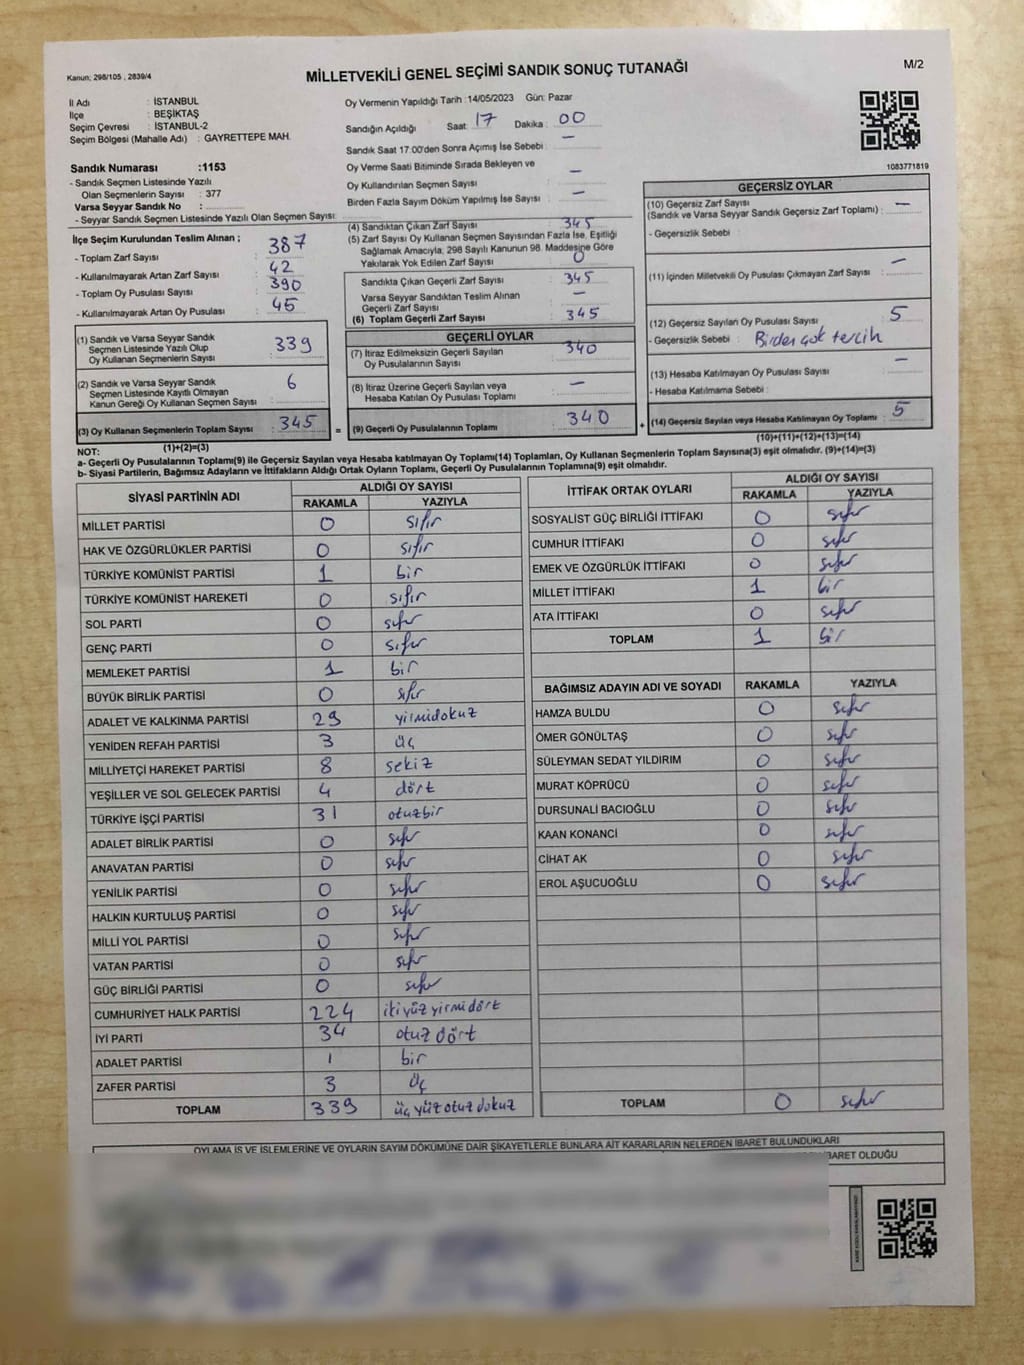 Kanun; 298/105 , 2839/4
MİLLETVEKİLİ GENEL SEÇİMİ SANDIK SONUÇ TUTANAĞI
M/2
İl Adı : İSTANBUL
İlçe : BEŞİKTAŞ
Seçim Çevresi : İSTANBUL-2
Seçim Bölgesi (Mahalle Adı) : GAYRETTEPE MAH.
Sandık Numarası :1153
- Sandık Seçmen Listesinde Yazılı
Olan Seçmenlerin Sayısı : 377
Varsa Seyyar Sandık No :
- Seyyar Sandık Seçmen Listesinde Yazılı Olan Seçmen Sayısı:
Oy Vermenin Yapıldığı Tarih :14/05/2023 Gün: Pazar
Sandığın Açıldığı Saat: 17 Dakika : 00
Sandık Saat 17:00'den Sonra Açımış İse Sebebi : —
Oy Verme Saati Bitiminde Sırada Bekleyen ve
Oy Kullandırılan Seçmen Sayısı : —
Birden Fazla Sayım Döküm Yapılmış İse Sayısı : —
1083771819
İlçe Seçim Kurulundan Teslim Alınan ;
- Toplam Zarf Sayısı : 387
- Kullanılmayarak Artan Zarf Sayısı : 42
- Toplam Oy Pusulası Sayısı : 390
- Kullanılmayarak Artan Oy Pusulası : 45
(1) Sandık ve Varsa Seyyar Sandık
Seçmen Listesinde Yazılı Olup
Oy Kullanan Seçmenlerin Sayısı : 339
(2) Sandık ve Varsa Seyyar Sandık
Seçmen Listesinde Kayıtlı Olmayan
Kanun Gereği Oy Kullanan Seçmen Sayısı : 6
(3) Oy Kullanan Seçmenlerin Toplam Sayısı : 345
(1)+(2)=(3)
(4) Sandıktan Çıkan Zarf Sayısı : 345
(5) Zarf Sayısı Oy Kullanan Seçmen Sayısından Fazla İse, Eşitliği
Sağlamak Amacıyla; 298 Sayılı Kanunun 98. Maddesine Göre
Yakılarak Yok Edilen Zarf Sayısı : 0
Sandıkta Çıkan Geçerli Zarf Sayısı : 345
Varsa Seyyar Sandıktan Teslim Alınan
Geçerli Zarf Sayısı : —
(6) Toplam Geçerli Zarf Sayısı : 345
GEÇERLİ OYLAR
(7) İtiraz Edilmeksizin Geçerli Sayılan
Oy Pusulalarının Sayısı : 340
(8) İtiraz Üzerine Geçerli Sayılan veya
Hesaba Katılan Oy Pusulası Toplamı : —
= (9) Geçerli Oy Pusulalarının Toplamı : 340
GEÇERSİZ OYLAR
(10) Geçersiz Zarf Sayısı
(Sandık ve Varsa Seyyar Sandık Geçersiz Zarf Toplamı) : —
- Geçersizlik Sebebi :
(11) İçinden Milletvekili Oy Pusulası Çıkmayan Zarf Sayısı : —
(12) Geçersiz Sayılan Oy Pusulası Sayısı : 5
- Geçersizlik Sebebi : Birden çok tercih
(13) Hesaba Katılmayan Oy Pusulası Sayısı : —
- Hesaba Katılmama Sebebi :
+ (14) Geçersiz Sayılan veya Hesaba Katılmayan Oy Toplamı : 5
(10)+(11)+(12)+(13)=(14)
NOT:
a- Geçerli Oy Pusulalarının Toplamı(9) ile Geçersiz Sayılan veya Hesaba katılmayan Oy Toplamı(14) Toplamları, Oy Kullanan Seçmenlerin Toplam Sayısına(3) eşit olmalıdır. (9)+(14)=(3)
b- Siyasi Partilerin, Bağımsız Adayların ve İttifakların Aldığı Ortak Oyların Toplamı, Geçerli Oy Pusulalarının Toplamına(9) eşit olmalıdır.
SİYASİ PARTİNİN ADI ALDIĞI OY SAYISI
RAKAMLA YAZIYLA
MİLLET PARTİSİ 0 sıfır
HAK VE ÖZGÜRLÜKLER PARTİSİ 0 sıfır
TÜRKİYE KOMÜNİST PARTİSİ 1 bir
TÜRKİYE KOMÜNİST HAREKETİ 0 sıfır
SOL PARTİ 0 sıfır
GENÇ PARTİ 0 sıfır
MEMLEKET PARTİSİ 1 bir
BÜYÜK BİRLİK PARTİSİ 0 sıfır
ADALET VE KALKINMA PARTİSİ 29 yirmidokuz
YENİDEN REFAH PARTİSİ 3 üç
MİLLİYETÇİ HAREKET PARTİSİ 8 sekiz
YEŞİLLER VE SOL GELECEK PARTİSİ 4 dört
TÜRKİYE İŞÇİ PARTİSİ 31 otuzbir
ADALET BİRLİK PARTİSİ 0 sıfır
ANAVATAN PARTİSİ 0 sıfır
YENİLİK PARTİSİ 0 sıfır
HALKIN KURTULUŞ PARTİSİ 0 sıfır
MİLLİ YOL PARTİSİ 0 sıfır
VATAN PARTİSİ 0 sıfır
GÜÇ BİRLİĞİ PARTİSİ 0 sıfır
CUMHURİYET HALK PARTİSİ 224 ikiyüz yirmidört
İYİ PARTİ 34 otuz dört
ADALET PARTİSİ 1 bir
ZAFER PARTİSİ 3 üç
TOPLAM 339 üç yüz otuz dokuz
İTTİFAK ORTAK OYLARI ALDIĞI OY SAYISI
RAKAMLA YAZIYLA
SOSYALİST GÜÇ BİRLİĞİ İTTİFAKI 0 sıfır
CUMHUR İTTİFAKI 0 sıfır
EMEK VE ÖZGÜRLÜK İTTİFAKI 0 sıfır
MİLLET İTTİFAKI 1 bir
ATA İTTİFAKI 0 sıfır
TOPLAM 1 bir
BAĞIMSIZ ADAYIN ADI VE SOYADI RAKAMLA YAZIYLA
HAMZA BULDU 0 sıfır
ÖMER GÖNÜLTAŞ 0 sıfır
SÜLEYMAN SEDAT YILDIRIM 0 sıfır
MURAT KÖPRÜCÜ 0 sıfır
DURSUNALİ BACIOĞLU 0 sıfır
KAAN KONANCİ 0 sıfır
CİHAT AK 0 sıfır
EROL AŞUCUOĞLU 0 sıfır
TOPLAM 0 sıfır
OYLAMA İŞ VE İŞLEMLERİNE VE OYLARIN SAYIM DÖKÜMÜNE DAİR ŞİKAYETLERLE BUNLARA AİT KARARLARIN NELERDEN İBARET BULUNDUKLARI
İBARET OLDUĞU